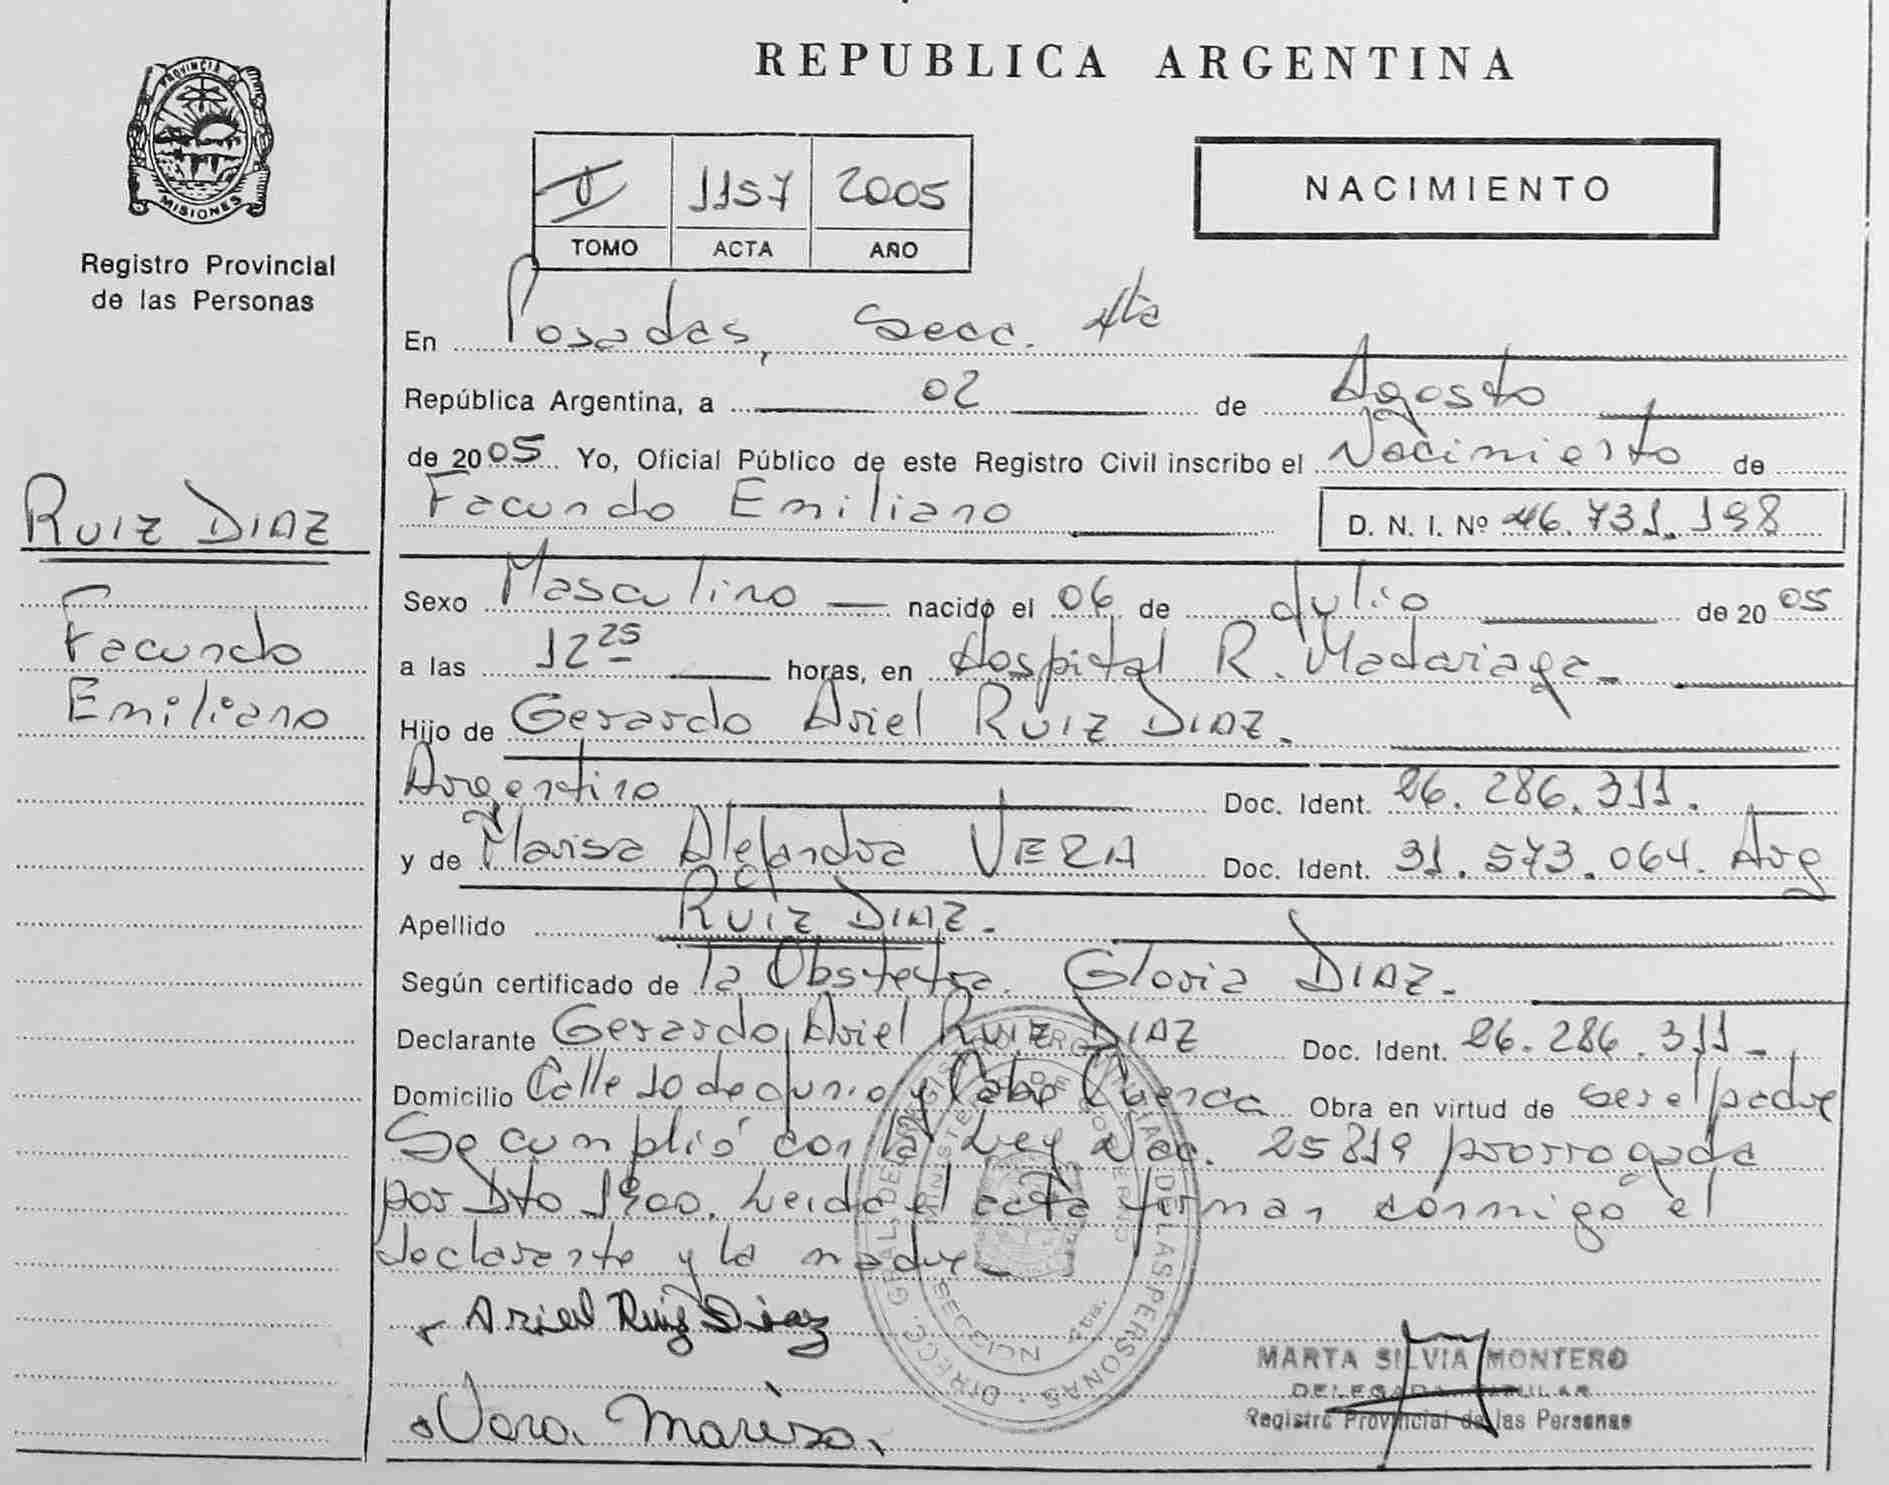 REPUBLICA ARGENTINA
PROVINCIA D
MISIONES
Registro Provincial
de las Personas
1157 2005
TOMO ACTA AÑO
NACIMIENTO
En Posadas, Secc. 4ta
República Argentina, a 02 de Agosto
de 2005 Yo, Oficial Público de este Registro Civil inscribo el Nacimiento de
Facundo Emiliano D. N. I. Nº 46.731.198
RUIZ DIAZ
Facundo
Emiliano
Sexo Masculino nacido el 06 de Julio de 2005
a las 12 25 horas, en Hospital R. Madariaga
Hijo de Gerardo Ariel RUIZ DIAZ.
Argentino Doc. Ident. 26.286.311.
y de Marisa Alejandra VERA Doc. Ident. 31.573.064. Arg
Apellido RUIZ DIAZ.
Según certificado de la Obstetra. Gloria DIAZ.
Declarante Gerardo Ariel RUIZ DIAZ Doc. Ident. 26.286.311
Domicilio Calle 10 de Junio y Cabo Cuenca Obra en virtud de ser el padre
Se cumplió con la Ley Nac. 25819 prorrogada
por Dto 1900. Leida el acta firman conmigo el
declarante y la madre
Ariel Ruiz Diaz
Vera Marisa.
DIRECC. GRAL DEL REGISTRO PROVINCIAL DE LAS PERSONAS
MINISTERIO DE GOBIERNO
SECCION 4ta.
MARTA SILVIA MONTERO
DELEGADA TITULAR
Registro Provincial de las Personas